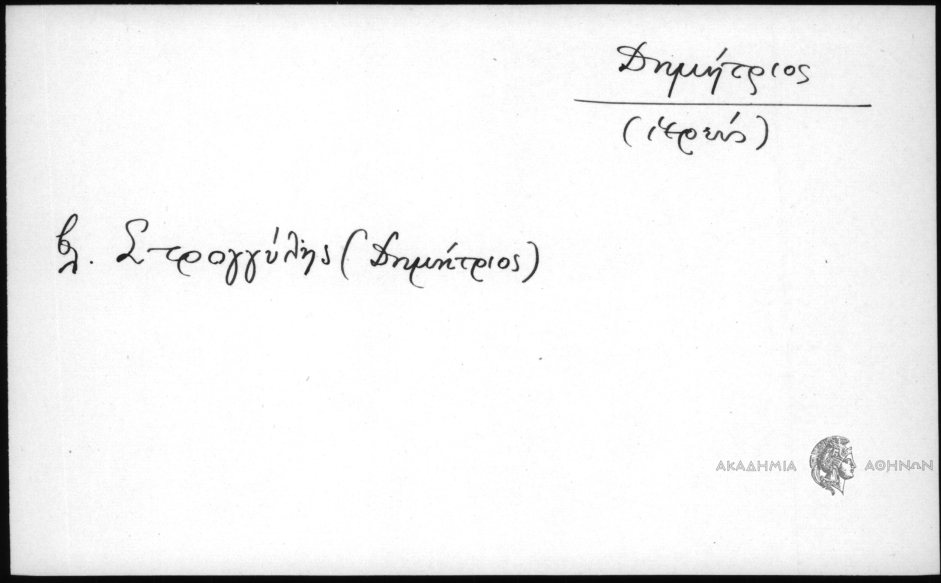 Δημήτριος
(ἱερεύς)
βλ. Στρογγύλης (Δημήτριος)
ΑΚΑΔΗΜΙΑ ΑΘΗΝΩΝ